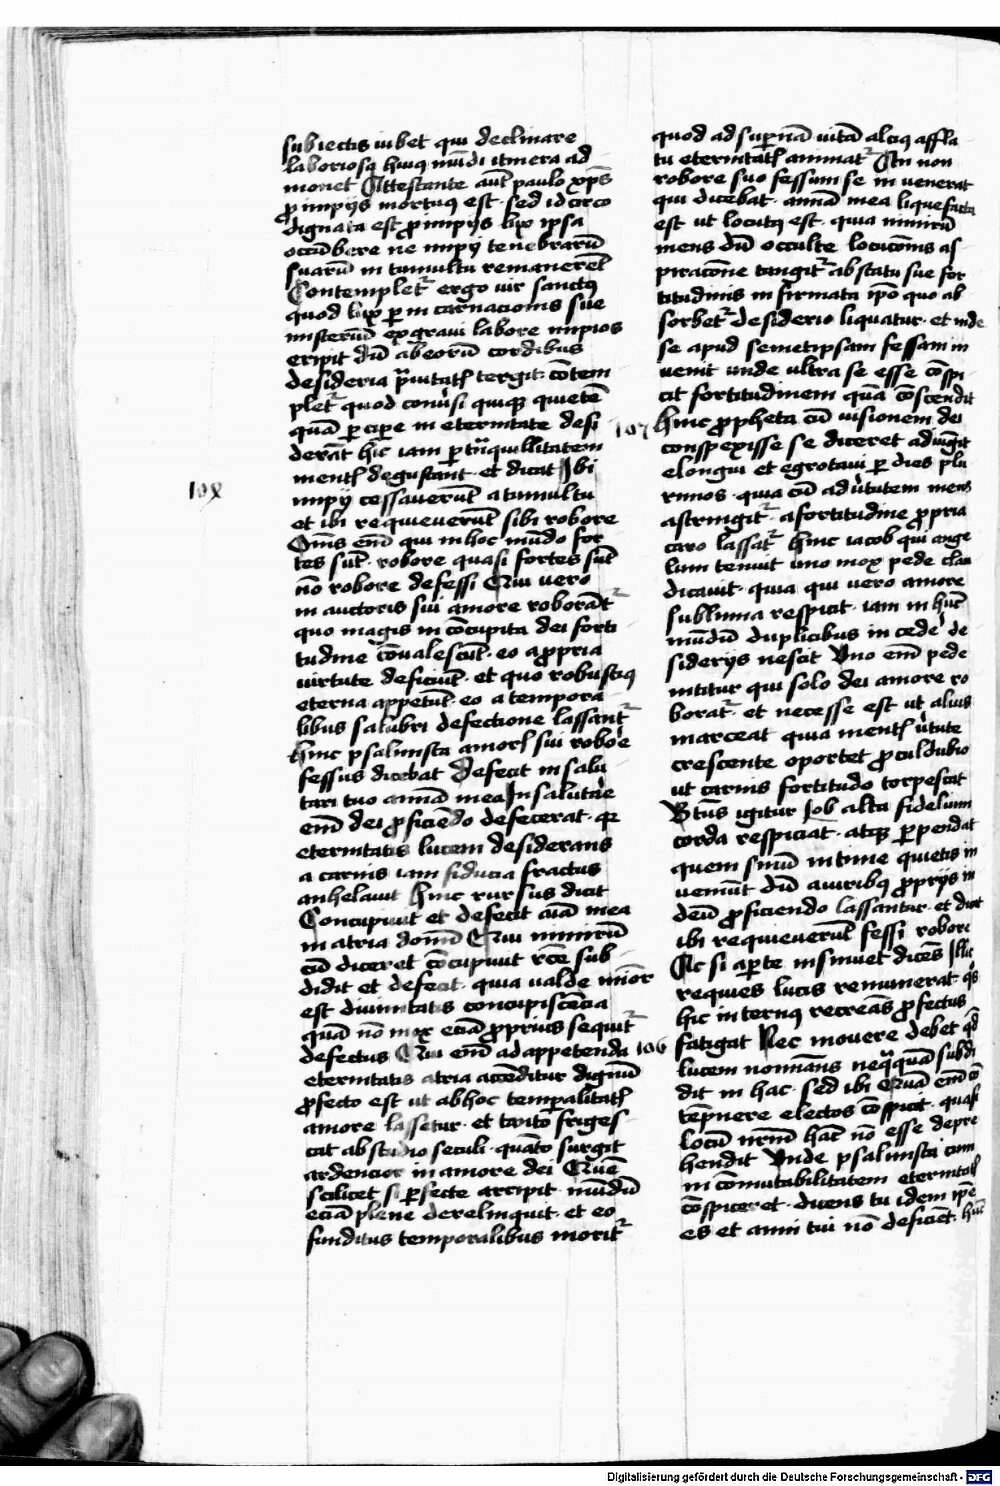 subiectis iubet qui declinare
laboriosa huiꝰ mūdi itinera ad
moriet᷑ Attestante aūt paulo xp̄s
ꝓ impijs mortuus est · sed idcirco
dignata est ꝓ impijs lux ipsa
occūbere ne impij tenebrarū
suarū in tumultu remanerēt
Contemplet᷑ ergo vir sanctꝰ
quod lux ꝑ incarnacionis sue
misteriū ex graui labore impios
eripit dū ab eorū cordibus
desideria prauitatis tergit · cōtem
plet᷑ quod conuersi quiqꝫ quietē
quā ꝑcipere in eternitate desi
derāt hic iam ꝑ trāquillitatem
mentis degustant · et dicat Ibi
108
impij cessauerūt a tumultu
et ibi requieuerūt sibi robore
Om̄s em̄ qui in hoc mūdo for
tes sūt · robore quasi fortes sūt
nō robore defessi Qui vero
in auctoris sui amore roborāt᷑
quo magis in cōcupita dei forti
tudine cōualescūt · eo a ꝓpria
virtute deficiūt · et quo robustiꝰ
eterna appetūt · eo a tempora
libus salubri defectione lassant᷑
Hinc psalmista amoris sui robore
fessus dicebat Defecit in salu
tari tuo anīa mea In salutare
em̄ dei ꝓficiēdo defecerat · qr
eternitatis lucem desiderans
a carnis iam fiducia fractus
anhelauit Hinc rursus dicit
Concupiuit et defecit aīa mea
in atria domī Qui nimirū
cū diceret cōcupiuit rc̄e sub
didit et defecit · quia valde minor
est diuinitatis concupiscēcia
quā nō mox eciā ꝓprius sequit᷑
defectus Qui em̄ ad appetenda
eternitatis atria accēditur dignū
ꝓfecto est ut ab hoc temꝑalitatis
amore lassetur · et tanto friges
cat ab studio seculi · quāto surgit
ardencior in amore dei Quē
scilicet si ꝑfecte arripit · mūdū
eciā plene derelinquit · et eo
funditus temporalibus morit᷑
quod ad supernā uitā alciꝰ affla
tu eternitatis animat᷑ An non
robore suo fessum se inuenerat
qui dicebat · anīa mea liquefacta
est ut locutꝰ est · quia nimirū
mens dū occulte locucōnis as
piracōne tangit᷑ ab statu sue for
titudinis infirmata ip̄o quo ab
sorbet᷑ desiderio liquatur · et inde
se apud semetipsam fessam in
uenit unde ultra se esse cōspi
cit fortitudinem quā cōscendit
107 Hinc ꝓpheta cū visionem dei
conspexisse se diceret adiūgit
elangui et egrotaui ꝑ dies plu
rimos · quia cū ad virtutem mens
astringit᷑ · a fortitudine ꝓpria
caro lassat᷑ Hinc iacob qui ange
lum tenuit uno mox pede clau
dicauit · quia qui vero amore
sublimia respicit · iam in hunc
mūdū duplicibus incedere de
siderijs nescit Uno em̄ pede
innititur qui solo dei amore ro
borat᷑ · et necesse est ut alius
marceat quia mentis virtute
crescente oportet ꝓculdubio
ut carnis fortitudo torpescat
Btūs igitur Iob alta fidelium
corda respiciat · atqꝫ ꝑpendat
quem sinū intime quietis in
ueniūt dū a viribꝰ ꝓprijs in
deū ꝓficiendo lassantur · et dicat
ibi requieuerūt fessi robore
Ac si aperte insinuet dicēs Illic
requies lucis remunerat qs̄
hic internꝰ recreās ꝓfectus
106 fatigat Nec mouere debet qd̄
lucem nominās nequaquā subdi
dit in hac · sed ibi Quā em̄ cō
tēpnere electos cōspicit · quasi
locū nr̄m hāc nō esse depre
hendit Unde psalmista cum
incōmutabilitatem eternitatis
cōspiceret · dicens tu idem ip̄e
es et anni tui nō deficiēt · hūc